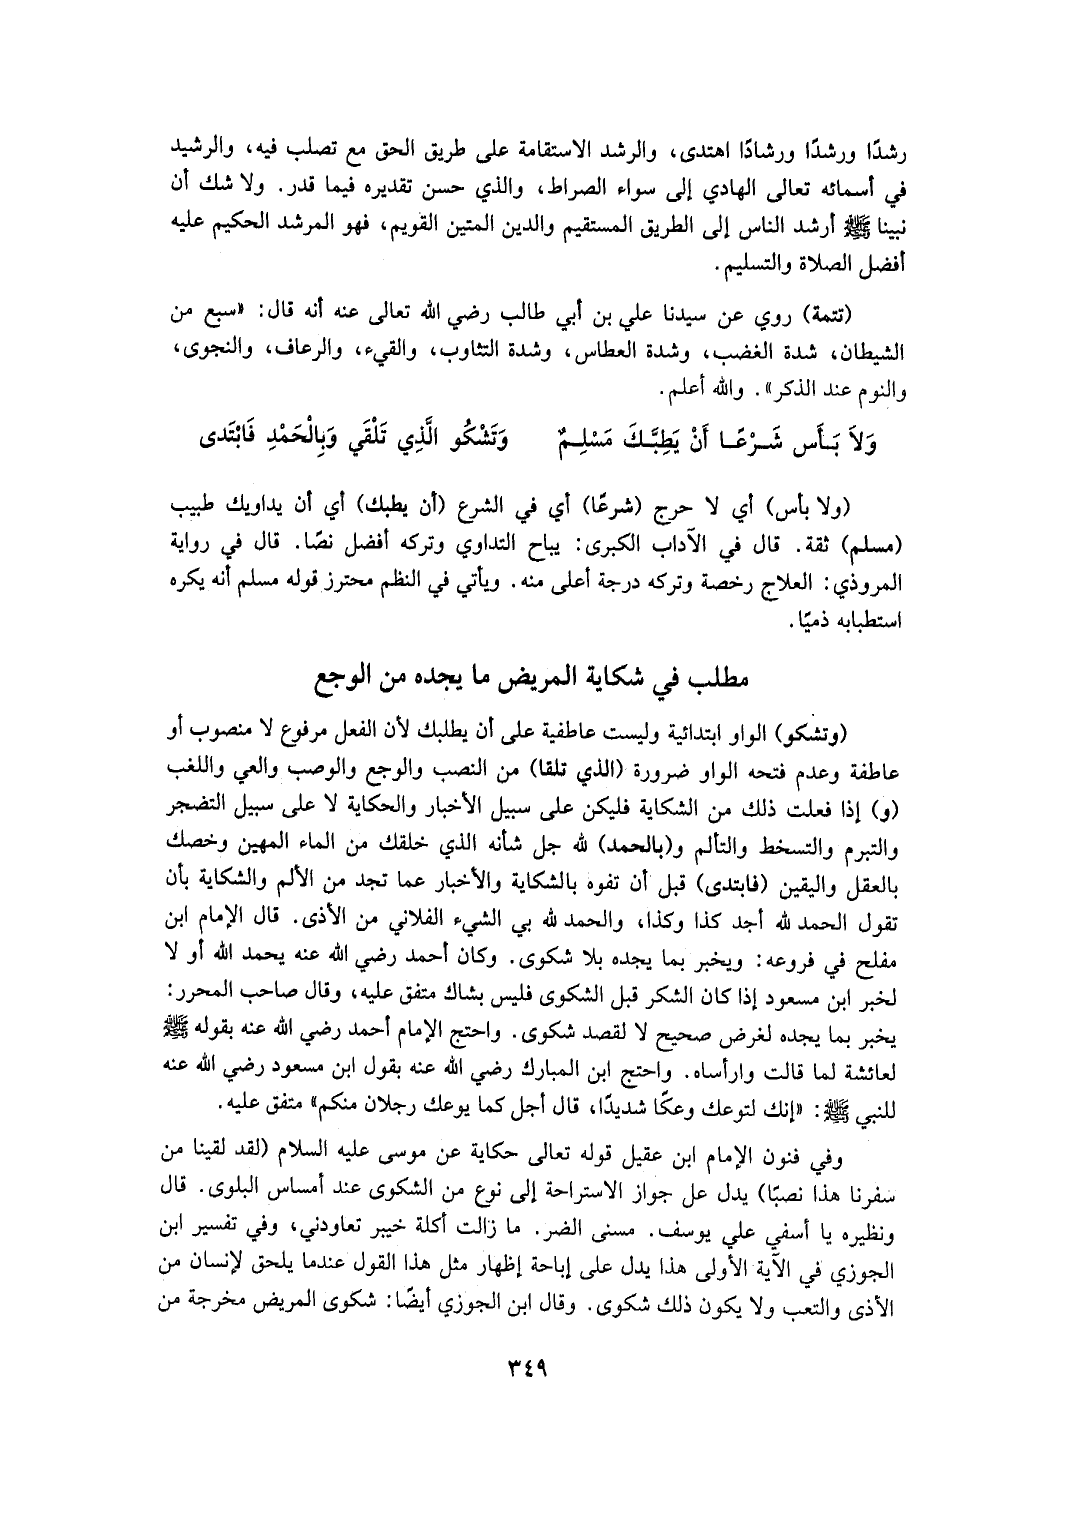 رشدًا ورشدًا ورشادًا اهتدى، والرشد الاستقامة على طريق الحق مع تصلب فيه، والرشيد
في أسمائه تعالى الهادي إلى سواء الصراط، والذي حسن تقديره فيما قدر. ولا شك أن
نبينا ﷺ أرشد الناس إلى الطريق المستقيم والدين المتين القويم، فهو المرشد الحكيم عليه
أفضل الصلاة والتسليم.
(تتمة) روي عن سيدنا علي بن أبي طالب رضي الله تعالى عنه أنه قال: «سبع من
الشيطان، شدة الغضب، وشدة العطاس، وشدة التثاوب، والقيء، والرعاف، والنجوى،
والنوم عند الذكر». والله أعلم.
وَلاَ بَـأَس شَــرْعًــا أَنْ يَطِبَّــكَ مَسْلِــمٌ وَتَشْكُو الَّذِي تَلْقَي وَبِالْحَمْدِ فَابْتَدى
(ولا بأس) أي لا حرج (شرعًا) أي في الشرع (أن يطبك) أي أن يداويك طبيب
(مسلم) ثقة. قال في الآداب الكبرى: يباح التداوي وتركه أفضل نصًا. قال في رواية
المروذي: العلاج رخصة وتركه درجة أعلى منه. ويأتي في النظم محترز قوله مسلم أنه يكره
استطبابه ذميًا.
مطلب في شكاية المريض ما يجده من الوجع
(وتشكو) الواو ابتدائية وليست عاطفية على أن يطلبك لأن الفعل مرفوع لا منصوب أو
عاطفة وعدم فتحه الواو ضرورة (الذي تلقا) من النصب والوجع والوصب والعي واللغب
(و) إذا فعلت ذلك من الشكاية فليكن على سبيل الأخبار والحكاية لا على سبيل التضجر
والتبرم والتسخط والتألم و(بالحمد) لله جل شأنه الذي خلقك من الماء المهين وخصك
بالعقل واليقين (فابتدى) قبل أن تفوه بالشكاية والأخبار عما تجد من الألم والشكاية بأن
تقول الحمد لله أجد كذا وكذا، والحمد لله بي الشيء الفلاني من الأذى. قال الإمام ابن
مفلح في فروعه: ويخبر بما يجده بلا شكوى. وكان أحمد رضي الله عنه يحمد الله أو لا
لخبر ابن مسعود إذا كان الشكر قبل الشكوى فليس بشاك متفق عليه، وقال صاحب المحرر:
يخبر بما يجده لغرض صحيح لا لقصد شكوى. واحتج الإمام أحمد رضي الله عنه بقوله ﷺ
لعائشة لما قالت وارأساه. واحتج ابن المبارك رضي الله عنه بقول ابن مسعود رضي الله عنه
للنبي ﷺ: «إنك لتوعك وعكًا شديدًا، قال أجل كما يوعك رجلان منكم» متفق عليه.
وفي فنون الإمام ابن عقيل قوله تعالى حكاية عن موسى عليه السلام (لقد لقينا من
سفرنا هذا نصبًا) يدل عل جواز الاستراحة إلى نوع من الشكوى عند أمساس البلوى. قال
ونظيره يا أسفي علي يوسف. مسنى الضر. ما زالت أكلة خيبر تعاودني، وفي تفسير ابن
الجوزي في الآية الأولى هذا يدل على إباحة إظهار مثل هذا القول عندما يلحق لإنسان من
الأذى والتعب ولا يكون ذلك شكوى. وقال ابن الجوزي أيضًا: شكوى المريض مخرجة من
٣٤٩